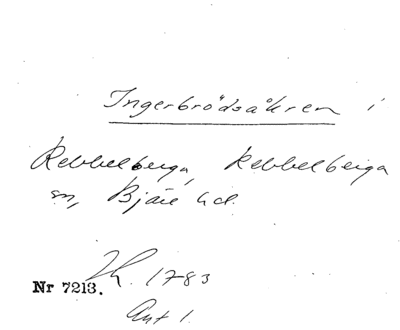 Ingerbrödsåkren i
Rebbelberga, Rebbelberga
sn, Bjäre hd.
Nr 7213. Th. 1783
Ant 1.